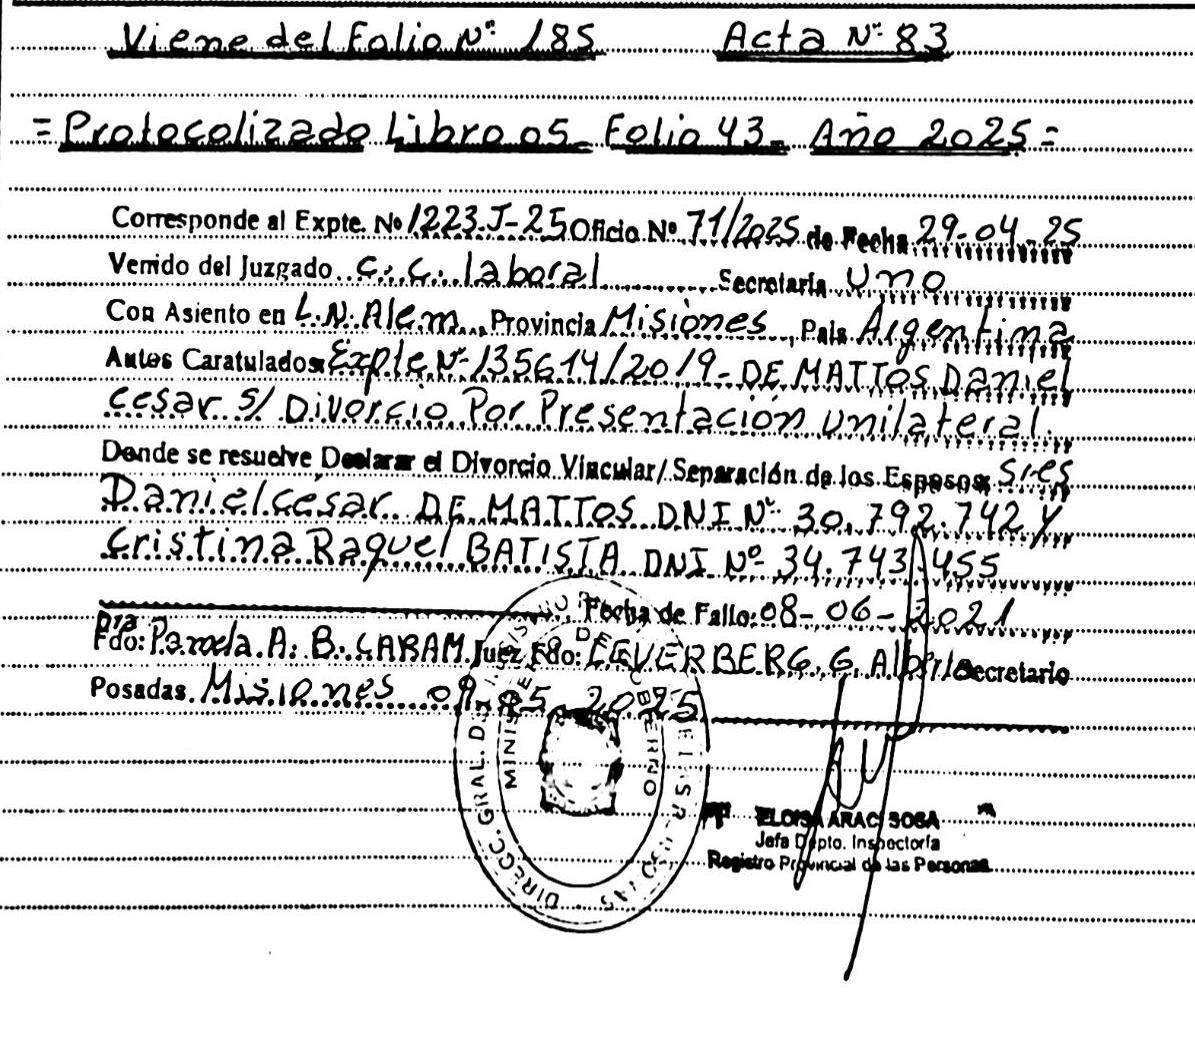 Viene del Folio Nº 185 Acta Nº 83
= Protocolizado Libro 05_ Folio 43_ Año 2025 =
Corresponde al Expte. Nº 1223-J-25 Oficio Nº 71/2025 de Fecha 29-04-25
Venido del Juzgado C. C. laboral Secretaría Uno
Con Asiento en L.N. Alem, Provincia Misiones, Pais Argentina
Autos Caratulados: Expte Nº 135614/2019- DE MATTOS Daniel
cesar s/ Divorcio Por Presentación unilateral.
Donde se resuelve Declarar el Divorcio Vincular/ Separación de los Esposos: Sres
Daniel césar DE MATTOS DNI Nº 30.792.742 Y
cristina Raquel BATISTA DNI Nº 34.743.455
Fecha de Fallo: 08-06-2021
Dra
Fdo: Pamela A. B. CARAM Juez Fdo: EGVERBERG, G. Alber Secretario
Posadas. Misiones 09. 05. 2025
DIRECC. GRAL. DEL REGISTRO PROV. DE LAS PERSONAS
MINISTERIO DE GOBIERNO
ELOISA ARACI SOSA
Jefa Dpto. Inspectoría
Registro Provincial de las Personas